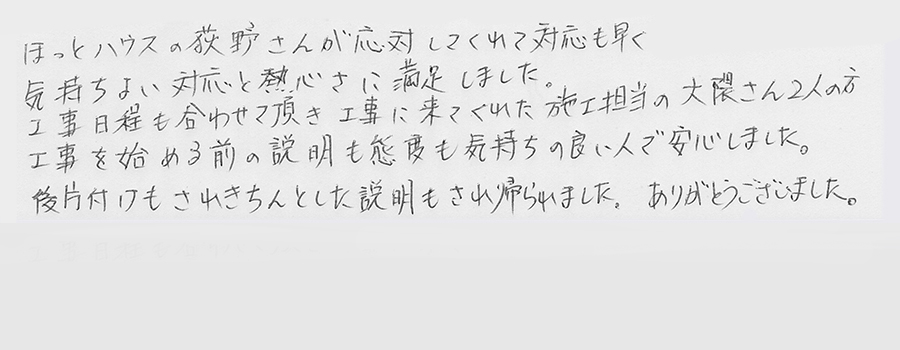 ほっとハウスの荻野さんが応対してくれて対応も早く
気持ちよい対応と熱心さに満足しました。
工事日程も合わせて頂き工事に来てくれた施工担当の大隈さん2人の方
工事を始める前の説明も態度も気持ちの良い人で安心しました。
後片付けもされきちんとした説明もされ帰られました。ありがとうございました。